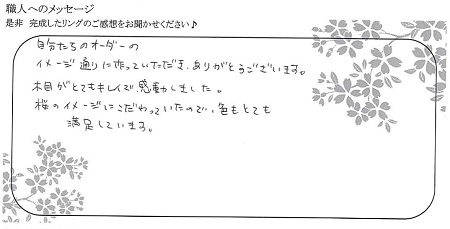 職人へのメッセージ
是非 完成したリングのご感想をお聞かせください♪
自分たちのオーダーの
イメージ通りに作っていただき、ありがとうございます。
木目がとてもキレイで感動しました。
桜のイメージにこだわっていたので、色もとても
満足しています。